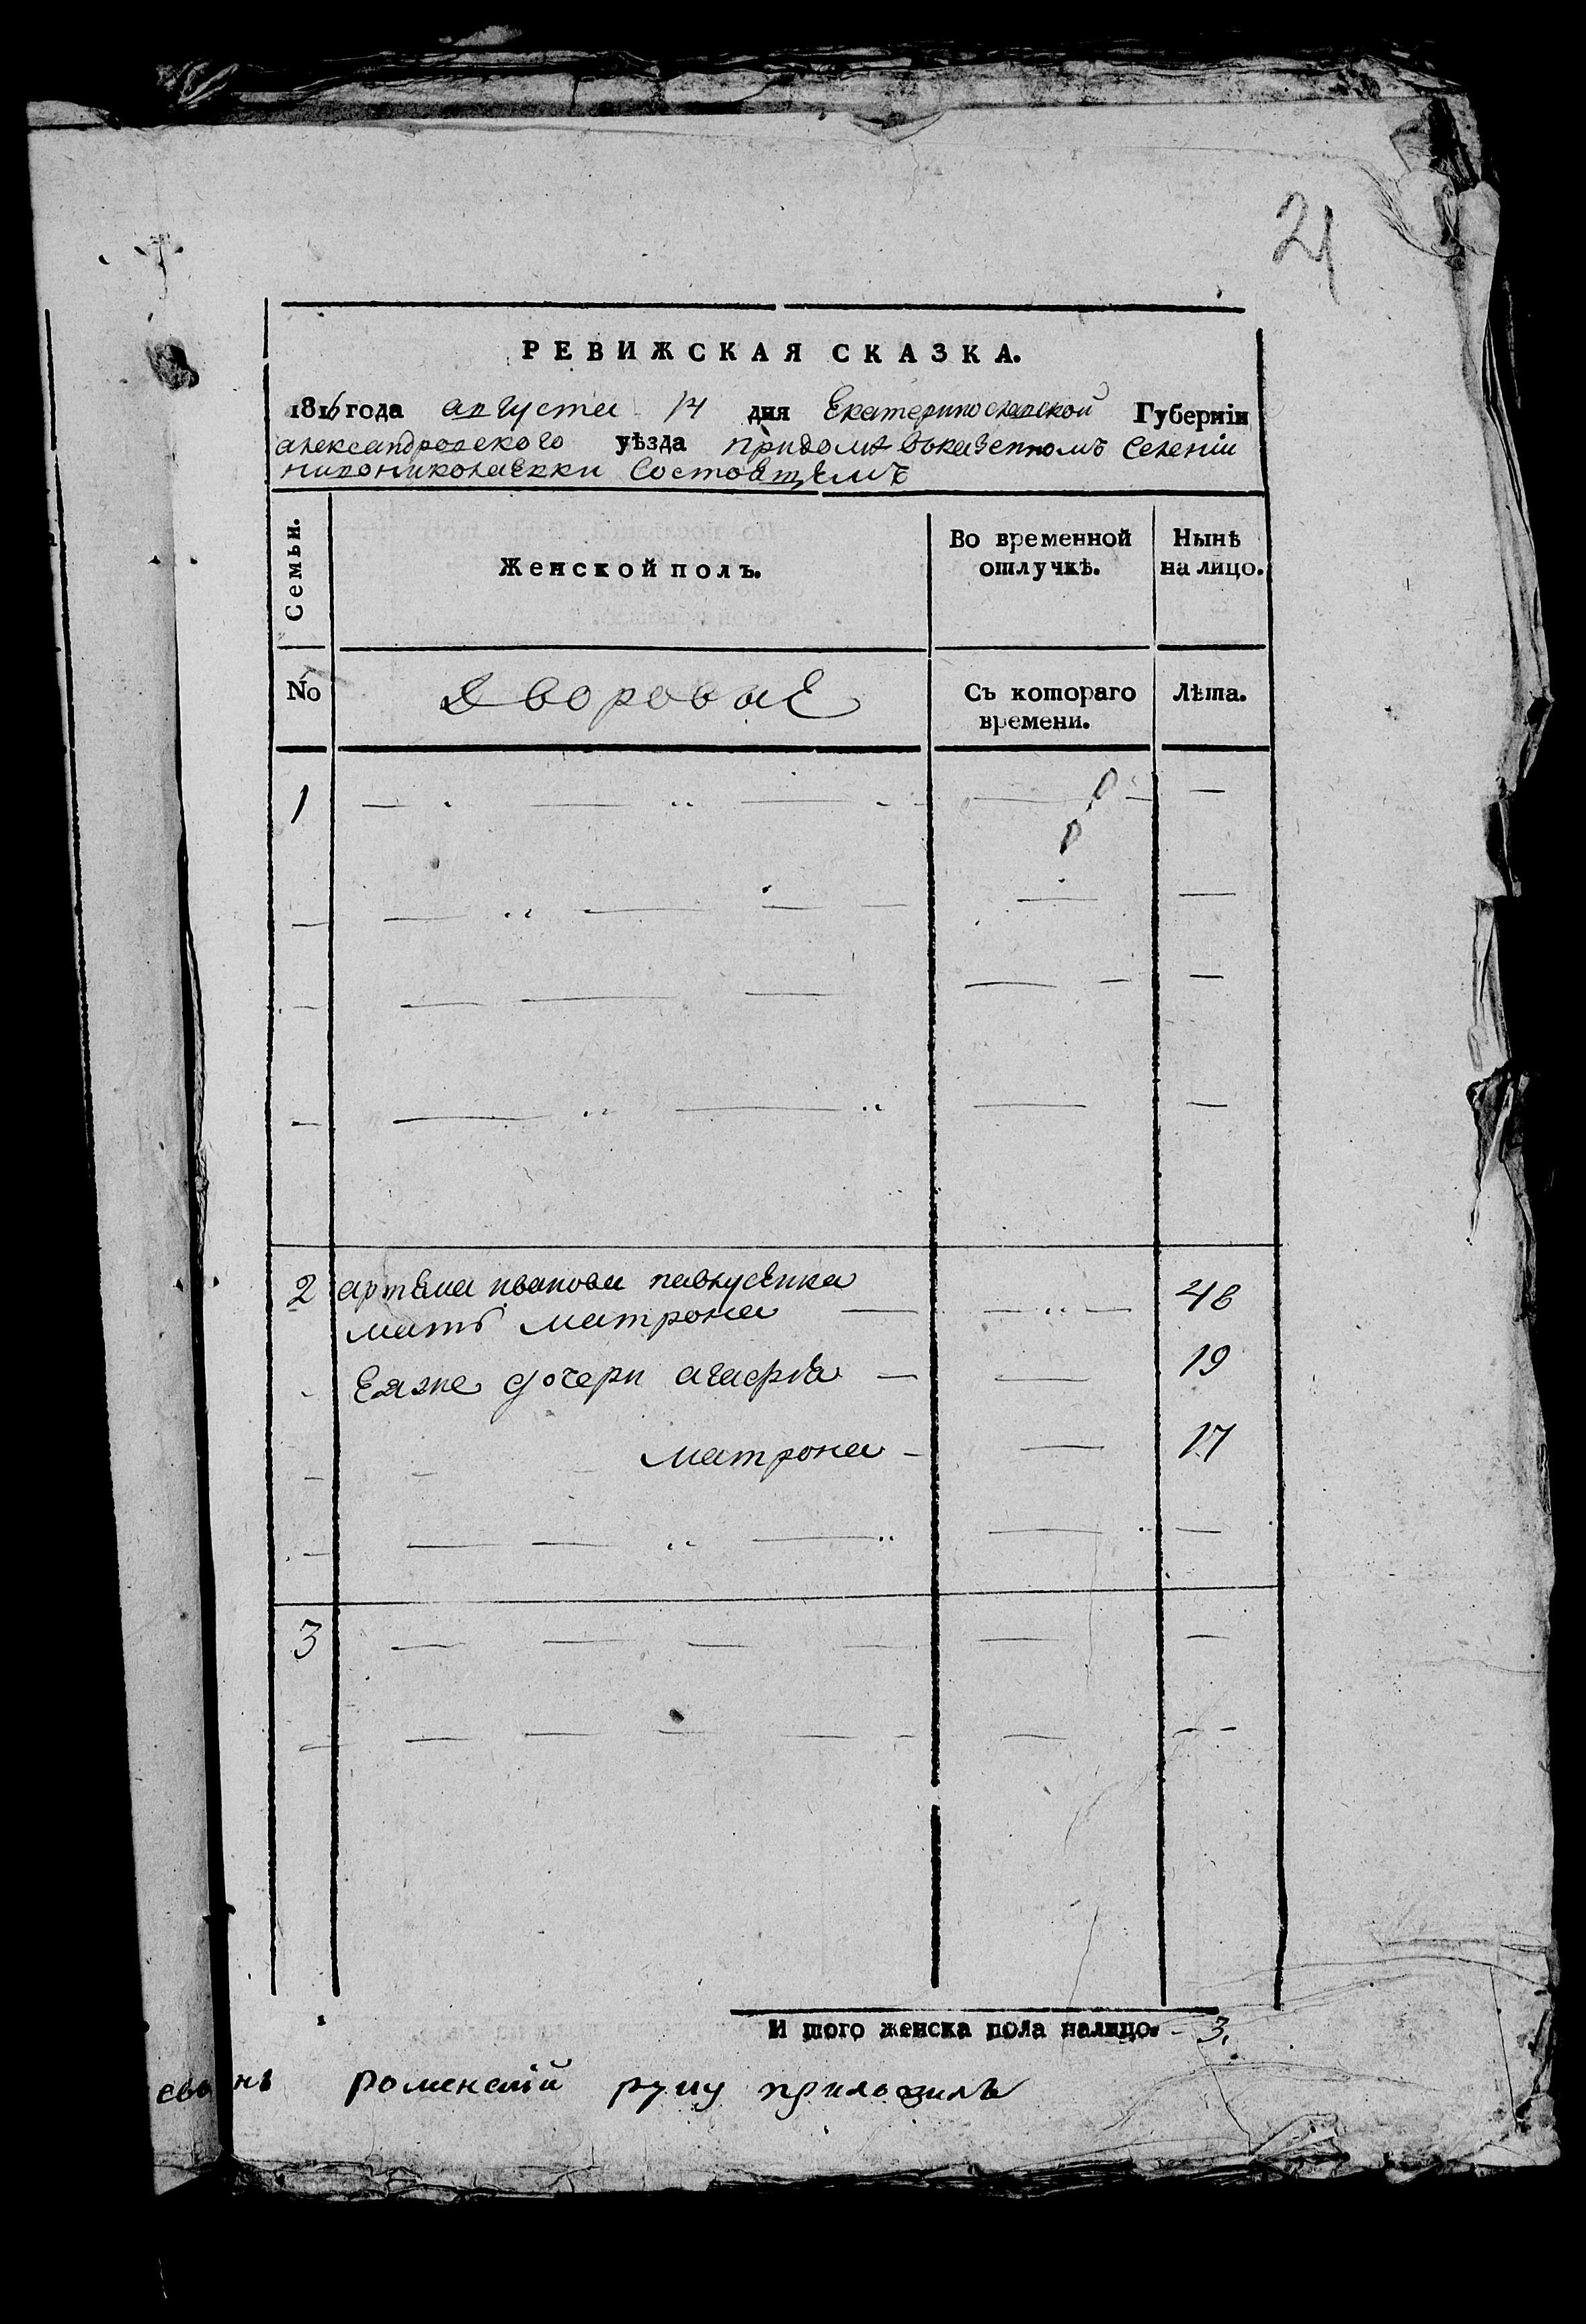 21
РЕВИЖСКАЯ СКАЗКА.
1816 года августа 14 дня Екатеринославской Губернїи
александровского уѣзда придомѣ вказенномъ Селенїи
Состоящемъ
Семьи. Женской полъ. Во временной отлучкѣ. Нынѣ на лицо.
No Дворовые Съ котораго времени. Лѣта.
1 — — — — —
— — — — — —
— — — — — —
— — — — —
2 артема иванова
мать матрона — — — 48
Еяже дочери агафїя — — 19
— — матрона — — 17
— — — — — —
3 — — — — — —
— — — — — — — — —
И того женска пола налицо. - 3.
роменский руку приложилъ